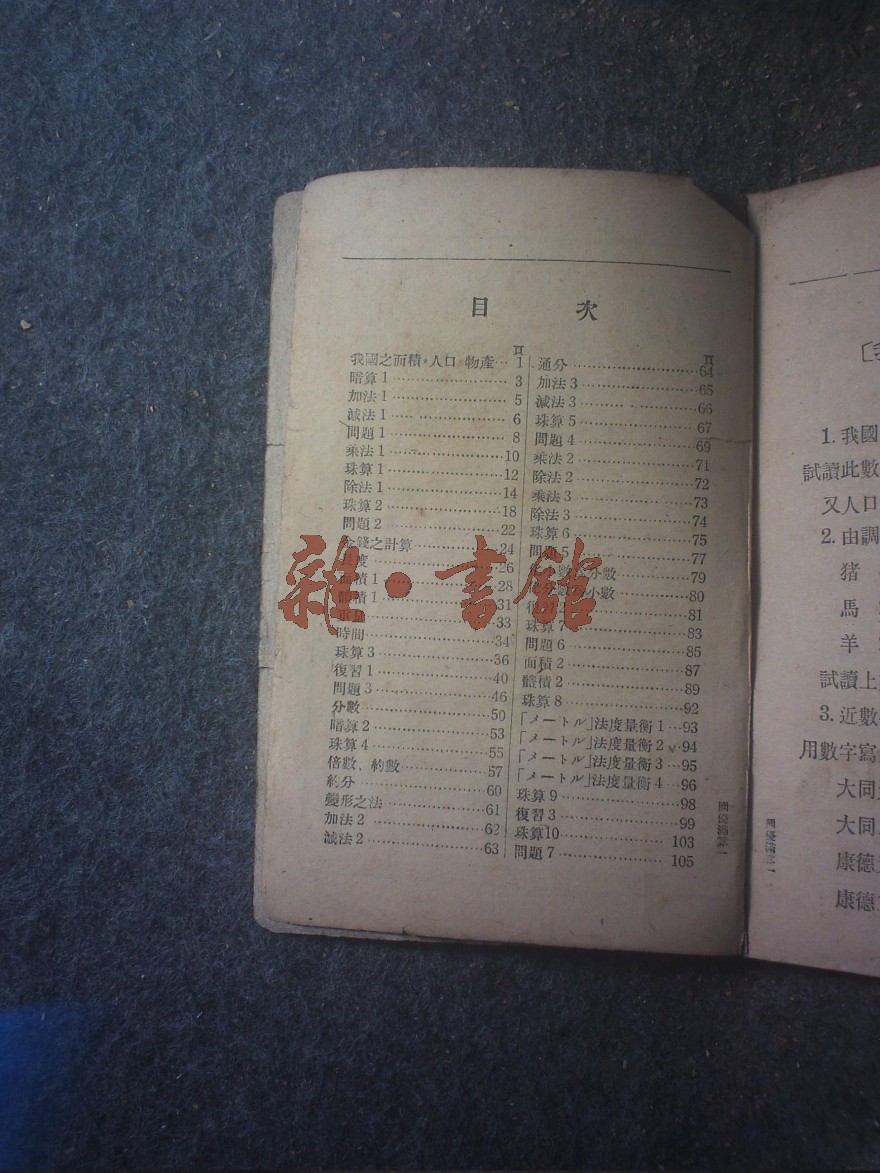 目次
頁
我國之面積·人口·物產 1
暗算1 3
加法1 5
減法1 6
問題1 8
乘法1 10
珠算1 12
除法1 14
珠算2 18
問題2 22
金錢之計算 24
長度 26
面積1 28
體積1 31
33
時間 34
珠算3 36
復習1 40
問題3 46
分數 50
暗算2 53
珠算4 55
倍數、約數 57
約分 60
變形之法 61
加法2 62
減法2 63
頁
通分 64
加法3 65
減法3 66
珠算5 67
問題4 69
乘法2 71
除法2 72
乘法3 73
除法3 74
珠算6 75
問題5 77
分數 79
小數 80
復習2 81
珠算7 83
問題6 85
面積2 87
體積2 89
珠算8 92
「メートル」法度量衡1 93
「メートル」法度量衡2 94
「メートル」法度量衡3 95
「メートル」法度量衡4 96
珠算9 98
復習3 99
珠算10 103
問題7 105
雜·書館
1.我國
試讀此數
又人口
2.由調
猪
馬
羊
試讀上
3.近數
用數字寫
大同
大同
康德
康德